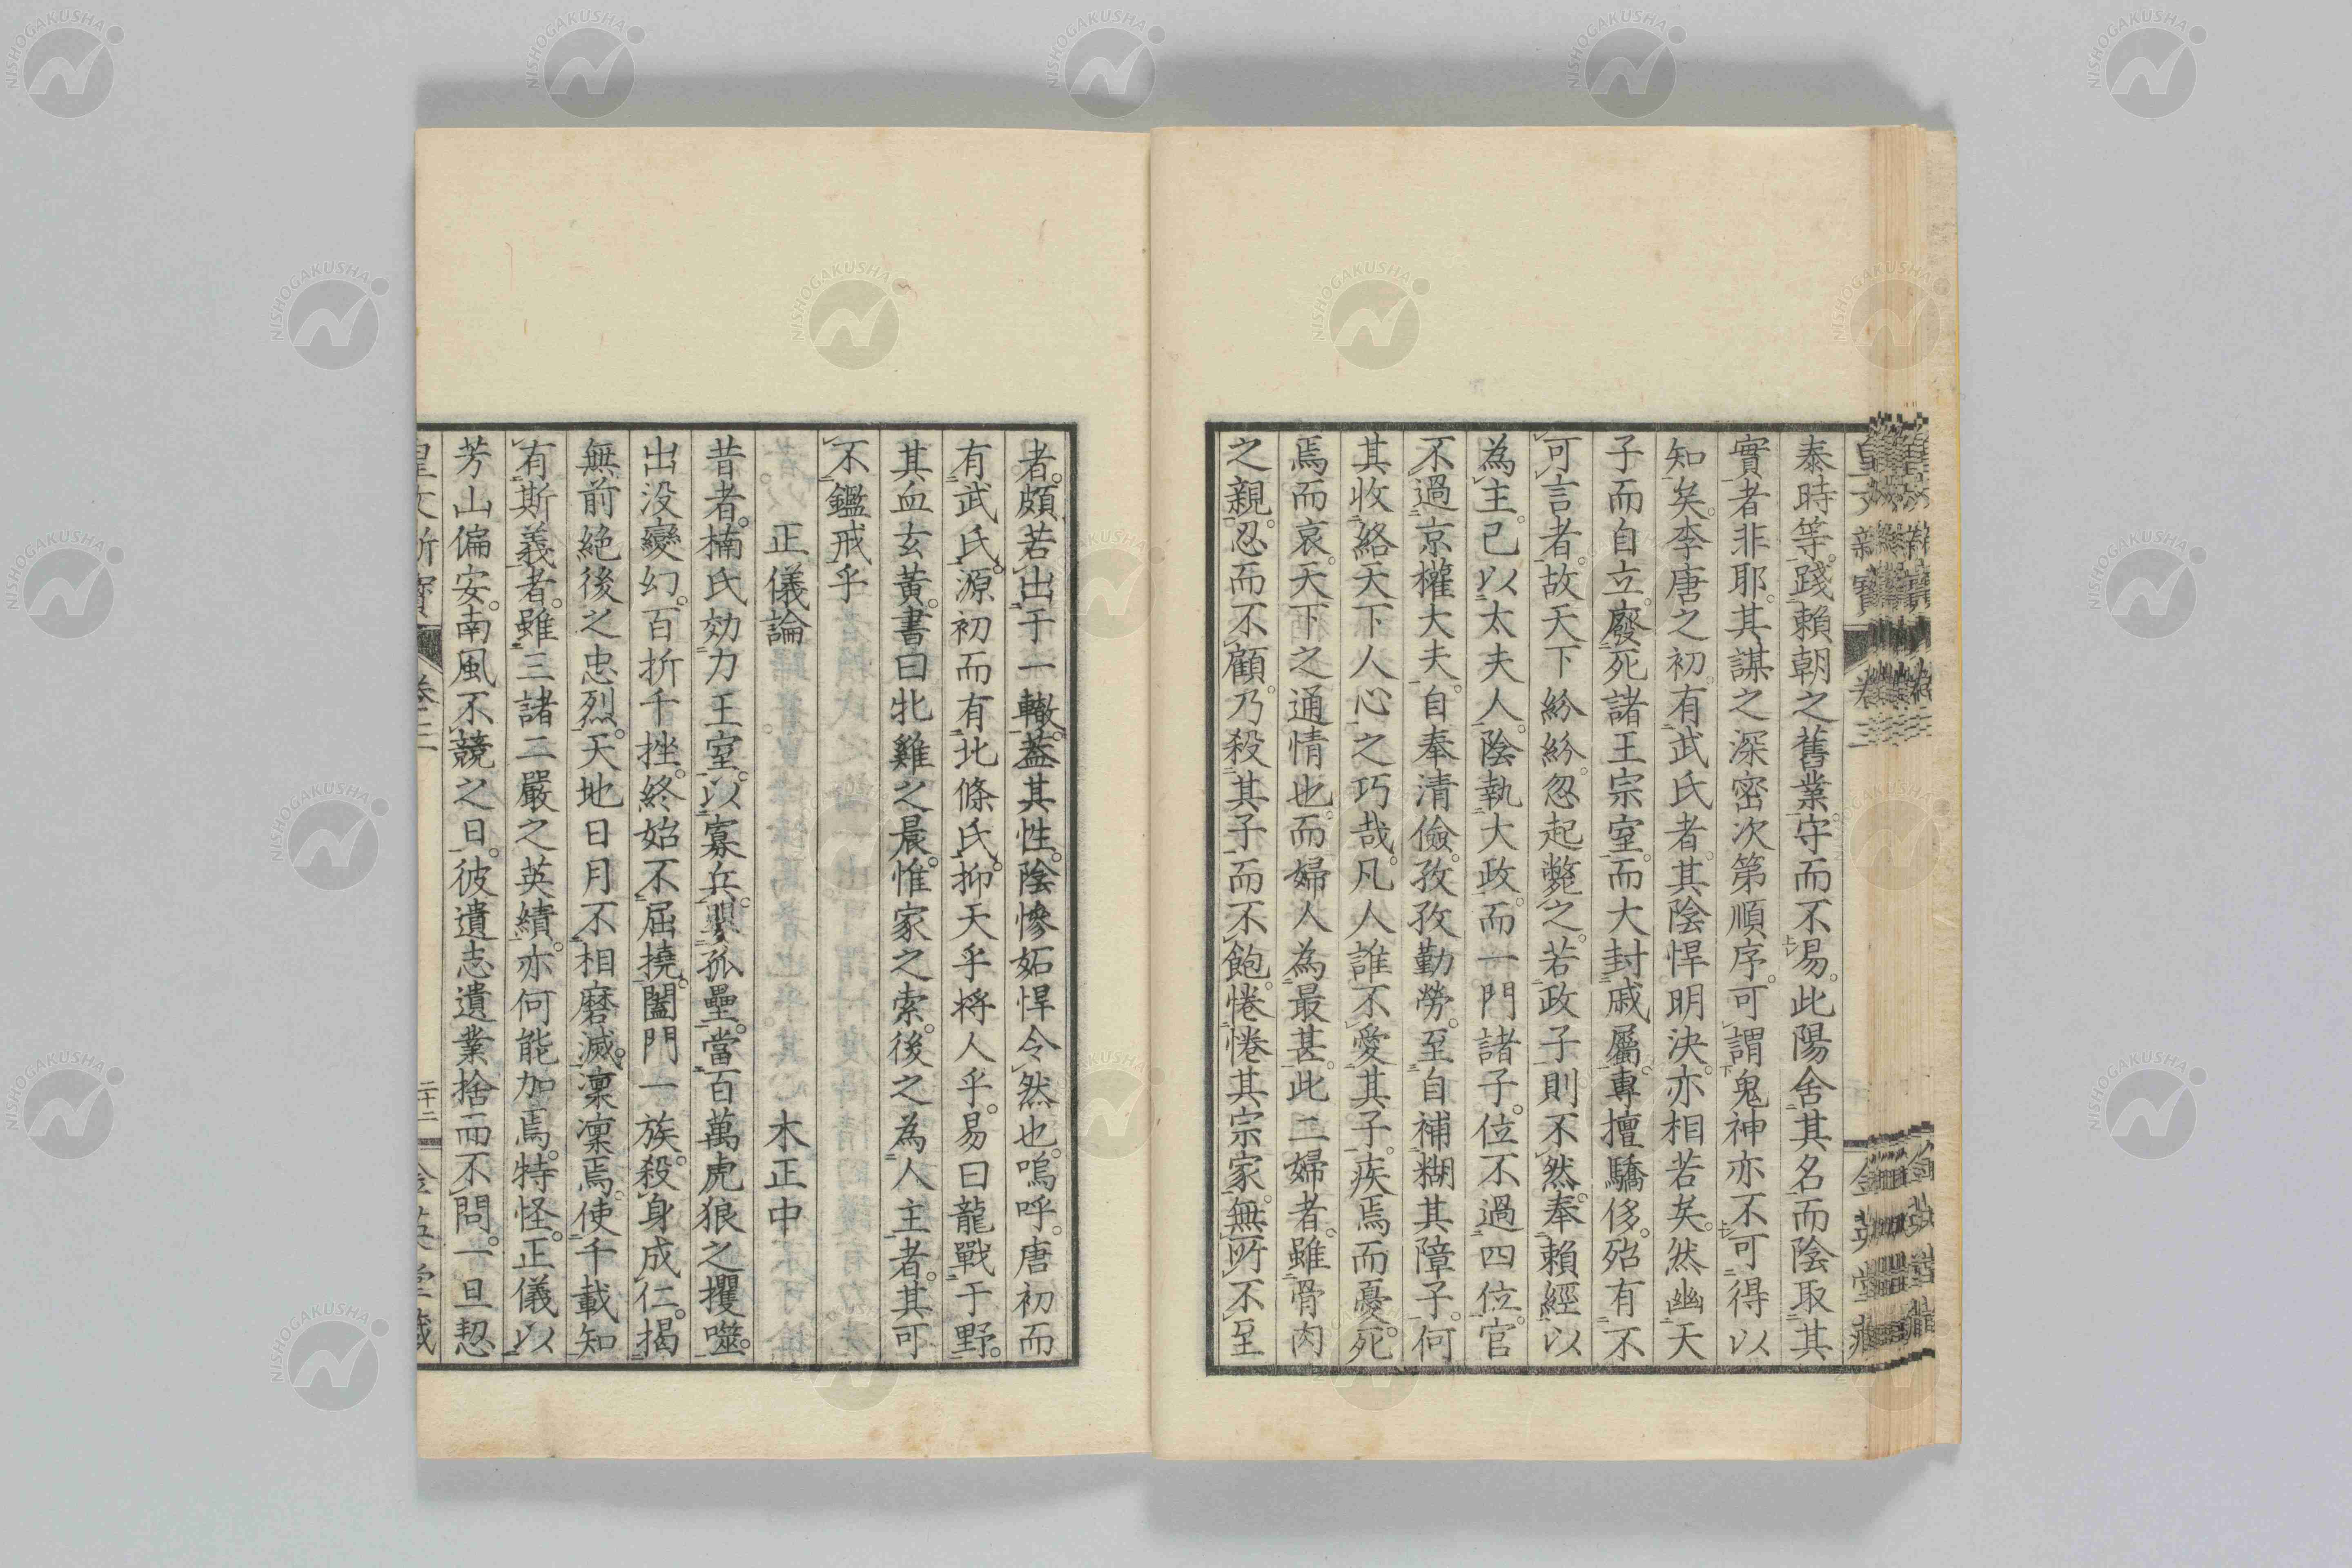 泰時等。踐賴朝之舊業。守而不易。此陽舍其名。而陰取其
實者非耶。其謀之深密次第順序。可謂鬼神亦不可得以
知矣。李唐之初。有武氏者。其陰悍明決。亦相若矣。然幽天
子而自立。廢死諸王宗室。而大封戚屬。專擅驕侈。殆有不
可言者。故天下紛紛。忽起斃之。若政子則不然。奉賴經以
為主。己以太夫人。陰執大政。而一門諸子。位不過四位。官
不過京權大夫。自奉清儉。孜孜勤勞。至自補糊其障子。何
其收絡天下人心之巧哉。凡人誰不愛其子。疾焉而憂。死
焉而哀。天下之通情也。而婦人為最甚。此二婦者。雖骨肉
之親。忍而不顧。乃殺其子。而不飽。惓惓其宗家。無所不至
者。頗若出于一轍。蓋其性。陰慘妬悍令然也。嗚呼。唐初而
有武氏。源初而有北條氏。抑天乎将人乎。易曰龍戰于野。
其血玄黃。書曰牝雞之晨。惟家之索。後之為人主者。其可
不鑑戒乎
正儀論 木正中
昔者。楠氏効力王室。以寡兵。嬰孤壘。當百萬虎狼之攫噬。
出没變幻。百折千挫。終始不屈撓。闔門一族。殺身成仁。揭
無前絶後之忠烈。天地日月不相磨滅。凜凜焉。使千載知
有斯義者。雖三諸二嚴之英績。亦何能加焉。特怪。正儀以
芳山偏安。南風不競之日。彼遺志遺業捨而不問。一旦恝
皇文新寶 卷三 二十二 金英堂藏